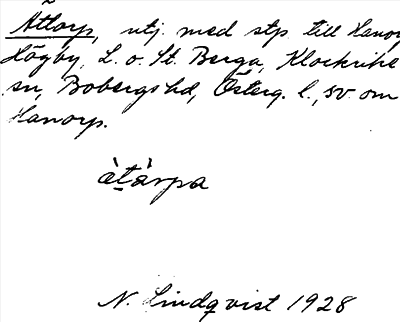 Åttorp, utj. med stp till Hanor
Högby, L. o. St. Berga, Klockrike
sn, Bobergs hd, Österg. l., sv om
Hanorp.
àtàrpa
N. Lindqvist 1928